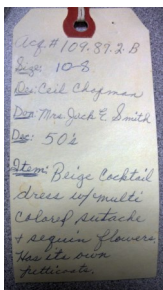 Acq.# 109.89.2.B
Size: 10-8
Des: Ceil Chapman
Don: Mrs. Jack E. Smith
Dec: 50's
Item: Beige Cocktail
dress w/ multi
colored sutache
+ sequin flowers.
Has its own
petticoats.